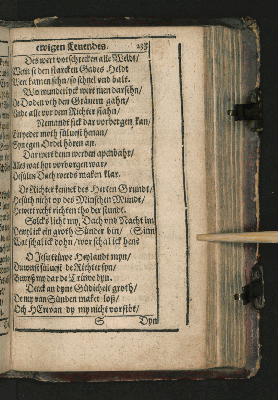 ewigen Leuendes. 233
Des wert vorschrecken alle Weldt/
Wenn se den starcken Gades Heldt
Wert kamen sehn/ so schnel vnd balt.
Wo wunderlyck wert men dar sehn/
De Doden vth den Gräuern gahn/
Vnde alle vor dem Richter stahn/
Nemandt sick dar vorborgen kan/
Ein yeder moth süluest heran/
Syn egen Ordel hören an.
Dar wert denn werden apenbahr/
Alles wat hyr vorborgen war/
De sülue Dach werdts maken klar.
De Richter kennet des Herten Grundt/
He süth nicht vp des Minschen Mundt/
He wert recht richten tho der stundt.
Solcks licht my Dach vnd Nacht im
Dewyl ick ein groth Sünder bin/ (Sinn
Wat schal ick dohn/ wor schal ick hen?
O Jesu trüwe Heylandt myn/
Du werst süluest de Richter syn/
Bewyß my dar de Trüwe dyn.
Denck an dyne Güdicheit groth/
De my van Sünden maket loß/
Och HEre van dy my nicht vorstöt/
S Dyn